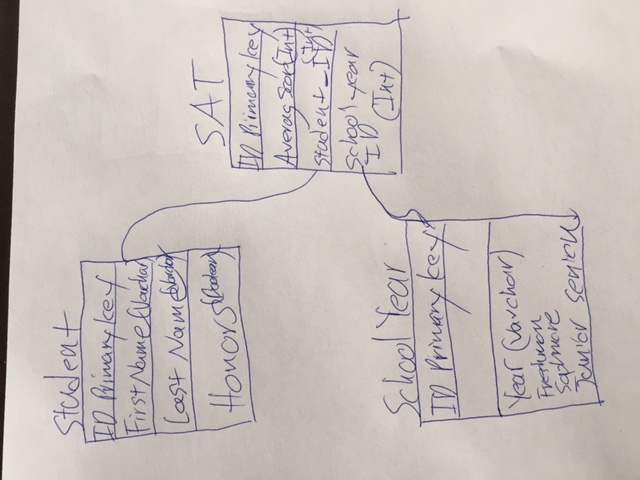 Student
ID Primary key
First Name (Varchar)
Last Name (Varchar)
Honors (Boolean)
SAT
ID Primary key
Averag Score (Int)
student_ID (Int)
school year
ID
(Int)
School Year
ID Primary key
Year (Varchar)
Freshman
Sophmore
Junior senior